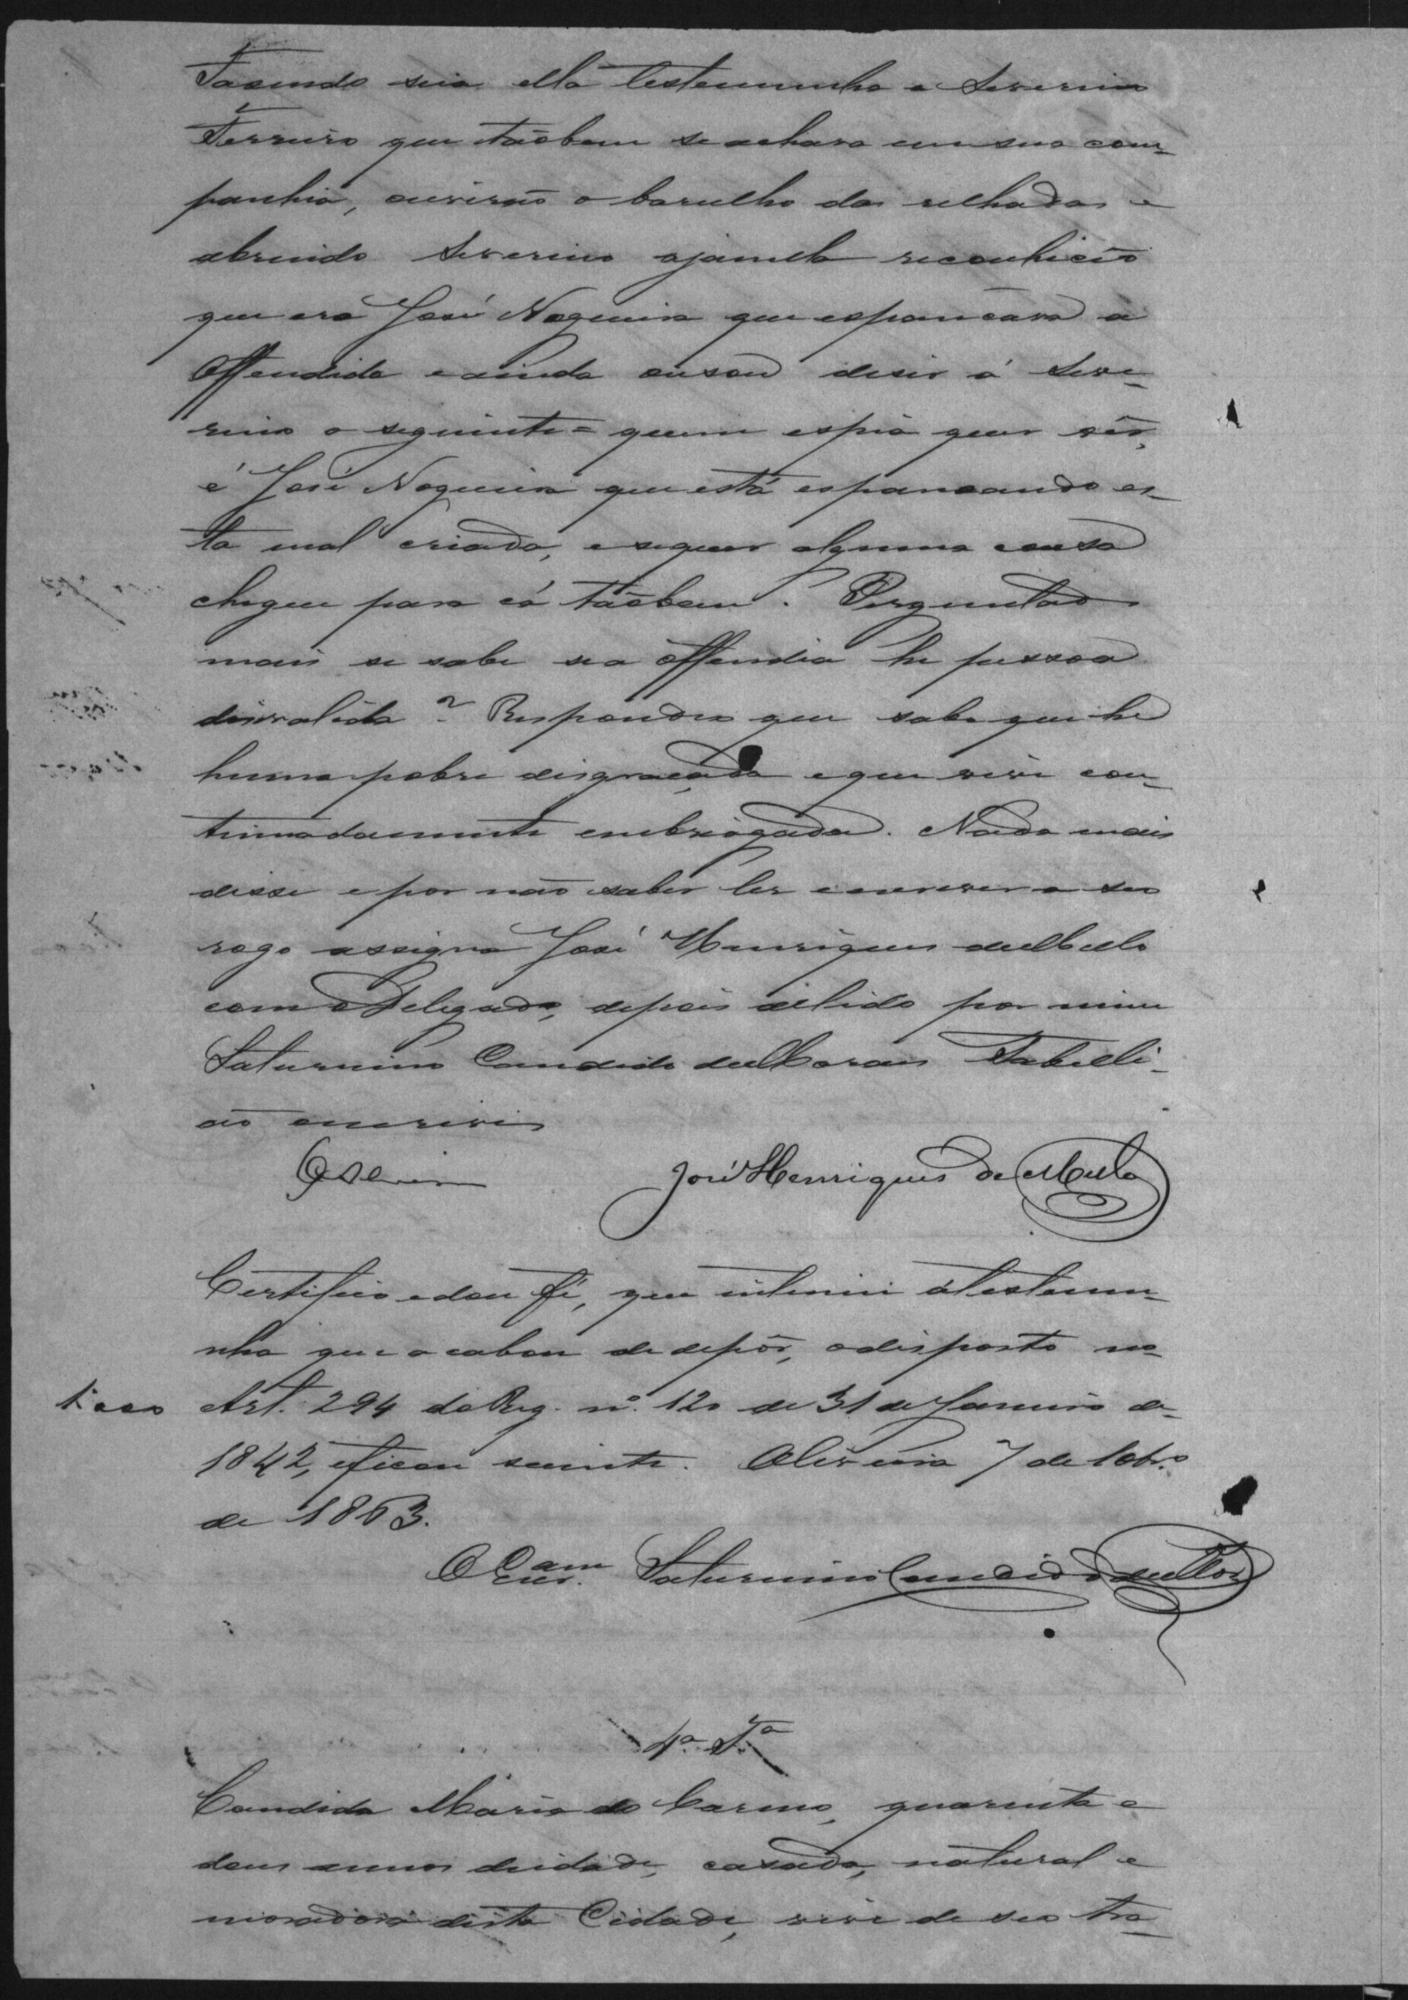 Fasendo seia ella testemunha e Severino
Ferreiro que tãobem se achava em sua com-
panhia, ouvirão o barulho das relhadas e
abrindo Severino ajanella reconhicêo
que era José Nogueira que espancava a
Offendida e ainda ousou diser á Seve-
rino o seguinte = quem espia quer vêr,
é José Nogueira que está espancando es-
ta mal criada, e se quer alguma cousa
chegue para cá tãobem. Perguntado
mais se sabe se a offendia he pessoa
disvalida? Respondeo que sabe que he
huma pobre disgraçada e que vive con-
tinuadamente embriagada. Nada mais
disse e por não saber ler e escrever a seu
rogo assigna José Henriques de Mello
com o Delegado, depois de lido por mim
Saturnino Candido de Moraes Tabelli-
ão escrivi
José Henriques de Mello
Certifico e dou fé, que intimei á testemu-
nha que acabou de depôr, o disposto no
Art. 294 do Reg. nº. 120 de 31 de Janeiro de
1842, e ficou sciente. Oliveira 7 de 10br.o
de 1863.
O Saturnino Candido de Mor.
4ª Tª
Candida Maria do Carmo, quarenta e
dous annos de idade, casada, natural e
moradora desta Cidade, vive de seu tra-